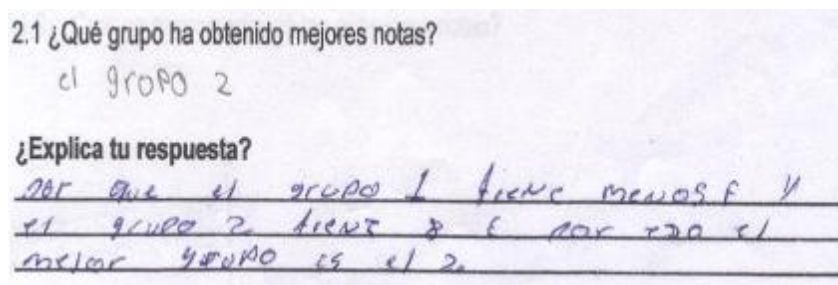 2.1 ¿Qué grupo ha obtenido mejores notas?
el gropo 2
¿Explica tu respuesta?
por que el grupo 1 tiene menos F y
el grupo 2 tiene 8 E por eso el
mejor grupo es el 2.